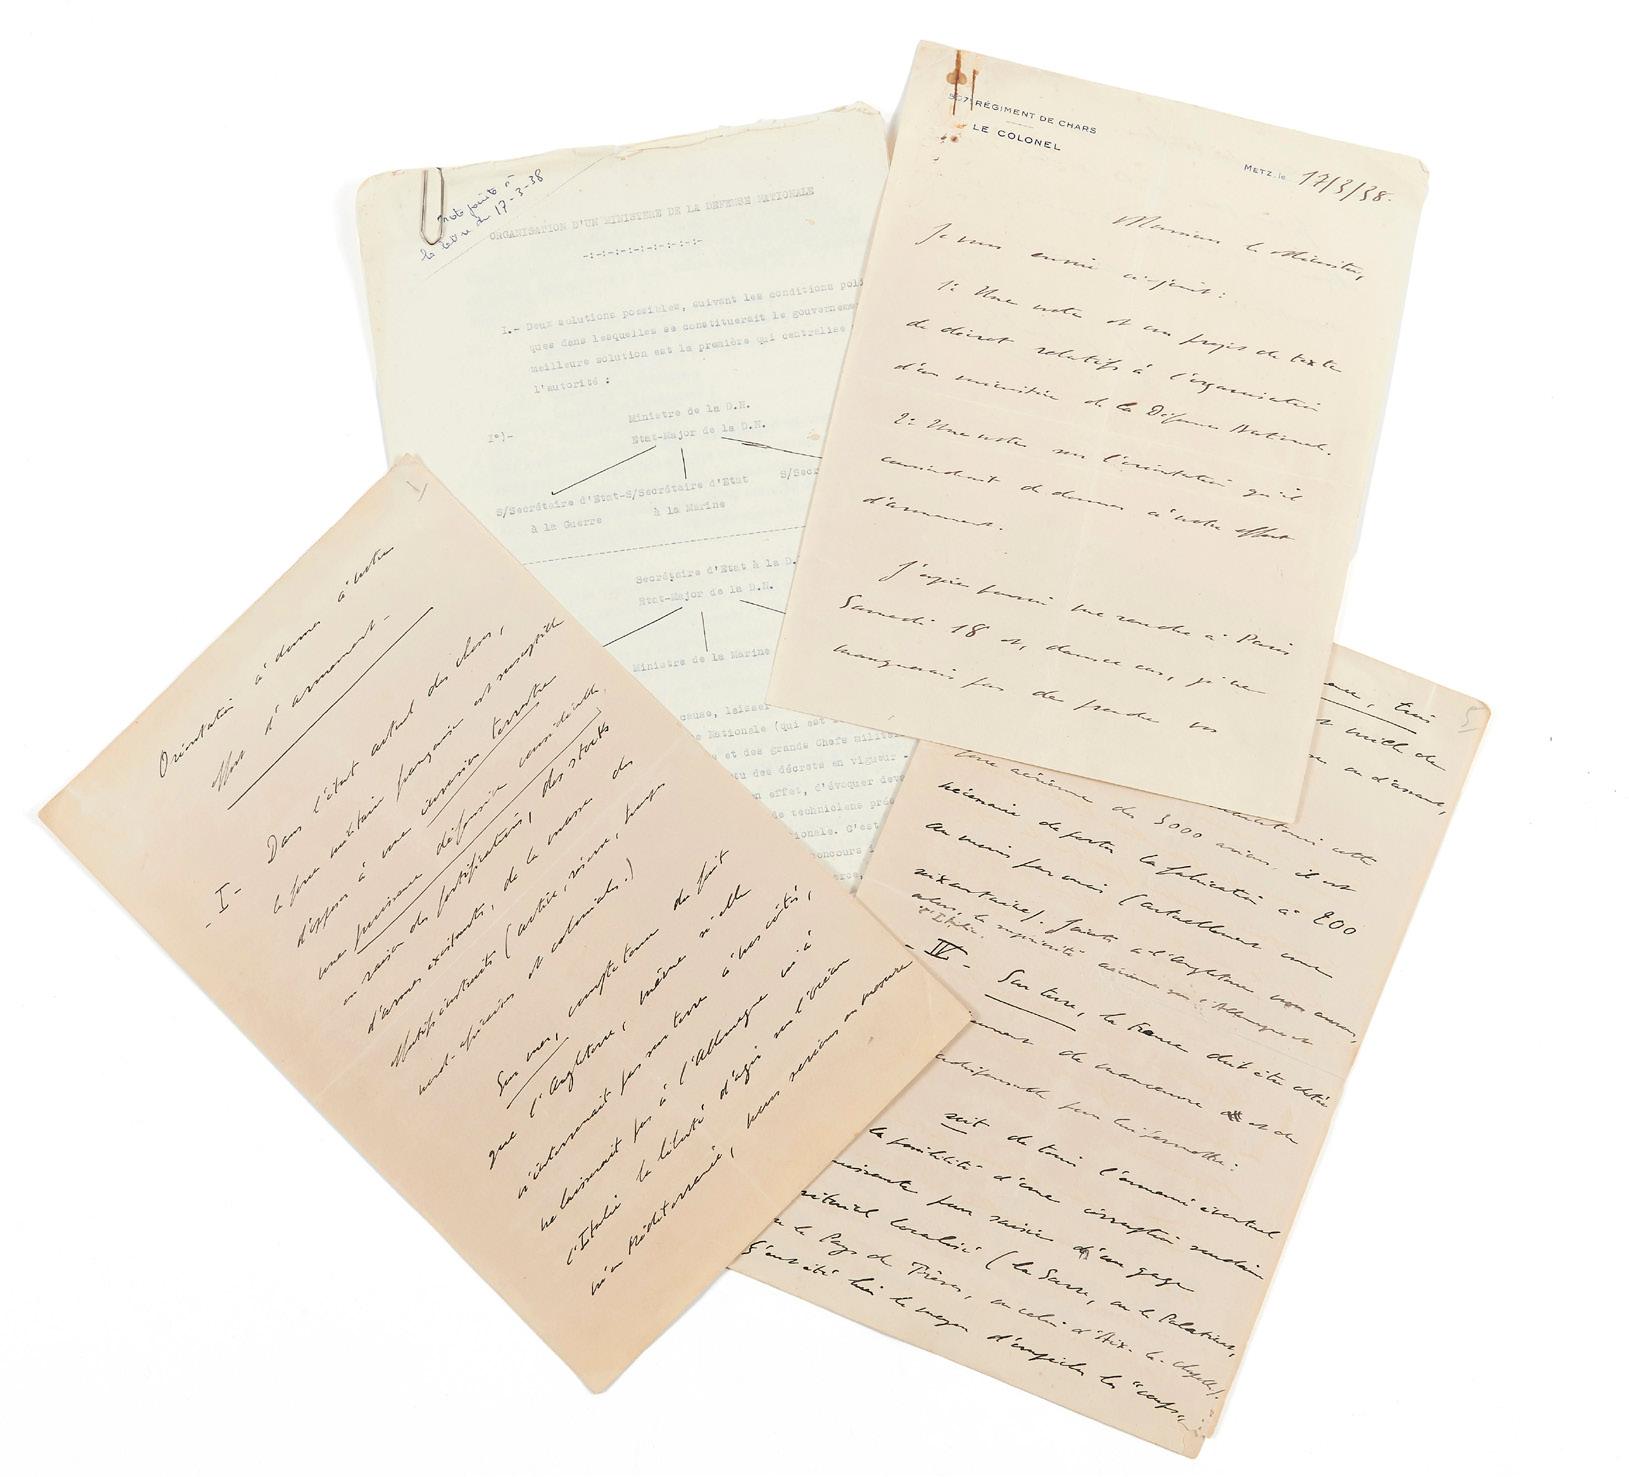 507e RÉGIMENT DE CHARS
LE COLONEL
METZ, le 17/3/38.
Monsieur le Ministre,
Je vous envoie ci-joint :
1° Une note et un projet de texte
de décret relatifs à l'organisation
d'un ministère de la Défense Nationale.
2° Une note sur l'orientation qu'il
conviendrait de donner à notre effort
d'armement.
J'espère pouvoir me rendre à Paris
Samedi 18 et, dans ce cas, je ne
manquerais pas de prendre vos
Note jointe à
la lettre du 17-3-38
ORGANISATION D'UN MINISTERE DE LA DEFENSE NATIONALE
-:-:-:-:-:-:-:-:-
I.- Deux solutions possibles, suivant les conditions poli
ques dans lesquelles se constituerait le gouvernement
meilleure solution est la première qui centralise
l'autorité :
I°)-
Ministre de la D.N.
Etat-Major de la D.N.
S/Secrétaire d'Etat-S/Secrétaire d'Etat S/Secr
à la Guerre à la Marine
Secrétaire d'Etat à la D.
Etat-Major de la D.N.
Ministre de la Marine
cause, laisser
Nationale (qui est
et des grands Chefs milit
tu des décrets en vigueur -
en effet, d'évoquer deva
de techniciens prés
ionale. C'est
concours
1
Orientation à donner à notre
effort d'armement -
- I - Dans l'état actuel des choses,
la force militaire française est susceptible
d'opposer à une invasion terrestre
une puissance défensive considérable,
en raison des fortifications, des stocks
d'armes existants, de la masse des
effectifs instruits (active, réserve, troupes
nord-africaines et coloniales.)
Sur mer, compte tenu du fait
que l'Angleterre, même si elle
n'intervenait pas sur terre à nos côtés,
ne laisserait pas à l'Allemagne ni à
l'Italie la liberté d'agir sur l'Océan
ni en Méditerranée, nous serions en mesure
5
trois
mille de
ou d'avant,
aérienne de 3000 avions, il est
nécessaire de porter la fabrication à 200
au moins par mois (actuellement une
soixantaine). Joints à l'Angleterre nous aurons,
alors, la supériorité aérienne sur l'Allemagne et
l'Italie.
- IV - Sur terre, la France doit être dotée
de manœuvre et de
indispensable pour lui permettre :
soit de tenir l'ennemi éventuel
la possibilité d'une
puissante par saisie d'un gage
territorial localisé (la Sarre, ou le Palatinat,
ou le Pays de Trèves, ou celui d'Aix-la-Chapelle).
C'eût été bien le moyen d'empêcher les "coups"